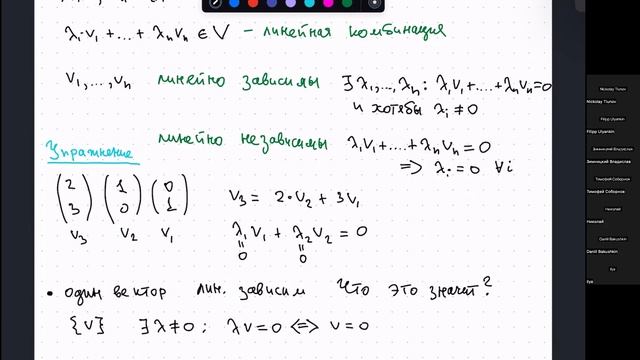 λ₁v₁ + ... + λₙvₙ ∈ V – линейная комбинация
v₁, ..., vₙ линейно зависимы ∃ λ₁, ..., λₙ : λ₁v₁ + .... + λₙvₙ = 0
и хотябы λᵢ ≠ 0
линейно независимы λ₁v₁ + .... + λₙvₙ = 0
⟹ λᵢ = 0 ∀i
Упражнение
(2 3) (1 0) (0 1)
v₃ v₂ v₁
v₃ = 2·v₂ + 3v₁
λ₁v₁ + λ₂v₂ = 0
0 0
• один вектор лин. зависим Что это значит?
{v} ∃ λ ≠ 0 ; λv = 0 ⟺ v = 0
Nickolay Tiunov
Nickolay Tiunov
Filipp Ulyankin
Filipp Ulyankin
Зимницкий Владислав
Зимницкий Владислав
Тимофей Соборнов
Тимофей Соборнов
Николай
Николай
Daniil Bakushkin
Daniil Bakushkin
Ilya
Ilya